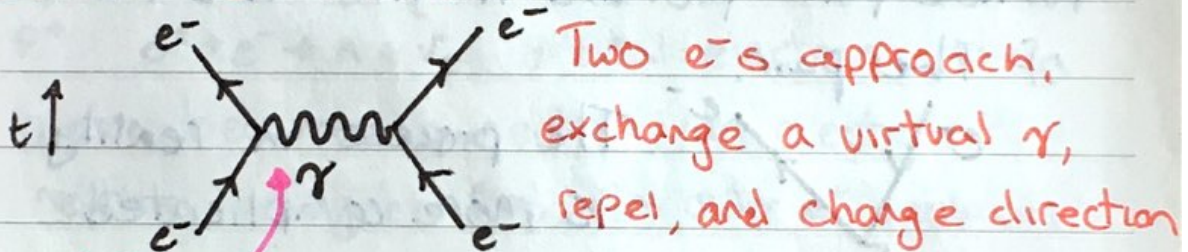 e⁻ e⁻ Two e⁻s approach,
t γ exchange a virtual γ,
e⁻ e⁻ repel, and change direction